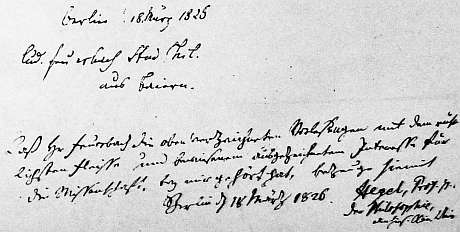 Berlin 18 März 1826
Lud. Feuerbach Stud Theol.
aus Baiern.
Daß Hr Feuerbach die oben verzeichneten Vorlesungen mit dem rühm
lichsten Fleisse und bewiesenem ausgezeichnetem Interesse für
die Wissenschaft bey mir gehört hat, bezeuge hiemit
Berlin d 18 März 1826. Hegel, Prof. p.
der Philosophie